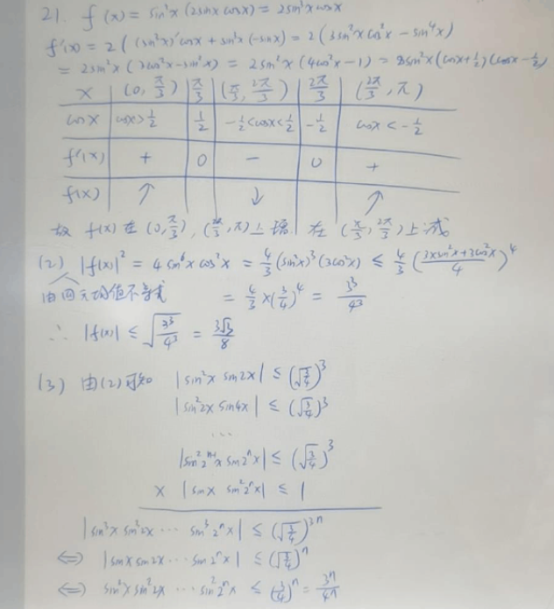 21. f(x) = sin²x(2sinx cosx) = 2sin³x cosx
f'(x) = 2((sin³x)'cosx + sin³x(-sinx)) = 2(3sin²x cos²x - sin⁴x)
= 2sin²x(3cos²x - sin²x) = 2sin²x(4cos²x - 1) = 8sin²x(cosx + 1/2)(cosx - 1/2)
x (0, π/3) π/3 (π/3, 2π/3) 2π/3 (2π/3, π)
cosx cosx > 1/2 1/2 -1/2 < cosx < 1/2 -1/2 cosx < -1/2
f'(x) + 0 - 0 +
f(x) ↑ ↓ ↑
故 f(x) 在 (0, π/3), (2π/3, π) 上增 在 (π/3, 2π/3) 上减
(2) |f(x)|² = 4 sin⁶x cos²x = 4/3 (sin²x)³(3cos²x) ≤ 4/3 ((3×sin²x + 3cos²x)/4)⁴
由四元均值不等式 = 4/3 × (3/4)⁴ = 3³/4³
∴ |f(x)| ≤ √(3³/4³) = 3√3/8
(3) 由(2)可知 |sin²x sin2x| ≤ (√(3/4))³
|sin²2x sin4x| ≤ (√(3/4))³
...
|sin²2ⁿ⁻¹x sin2ⁿx| ≤ (√(3/4))³
× |sinx sin²2ⁿx| ≤ 1
|sin³x sin³2x ··· sin³2ⁿx| ≤ (√(3/4))³ⁿ
⟺ |sinx sin2x ··· sin2ⁿx| ≤ (√(3/4))ⁿ
⟺ sin²x sin²2x ··· sin²2ⁿx ≤ (3/4)ⁿ = 3ⁿ/4ⁿ